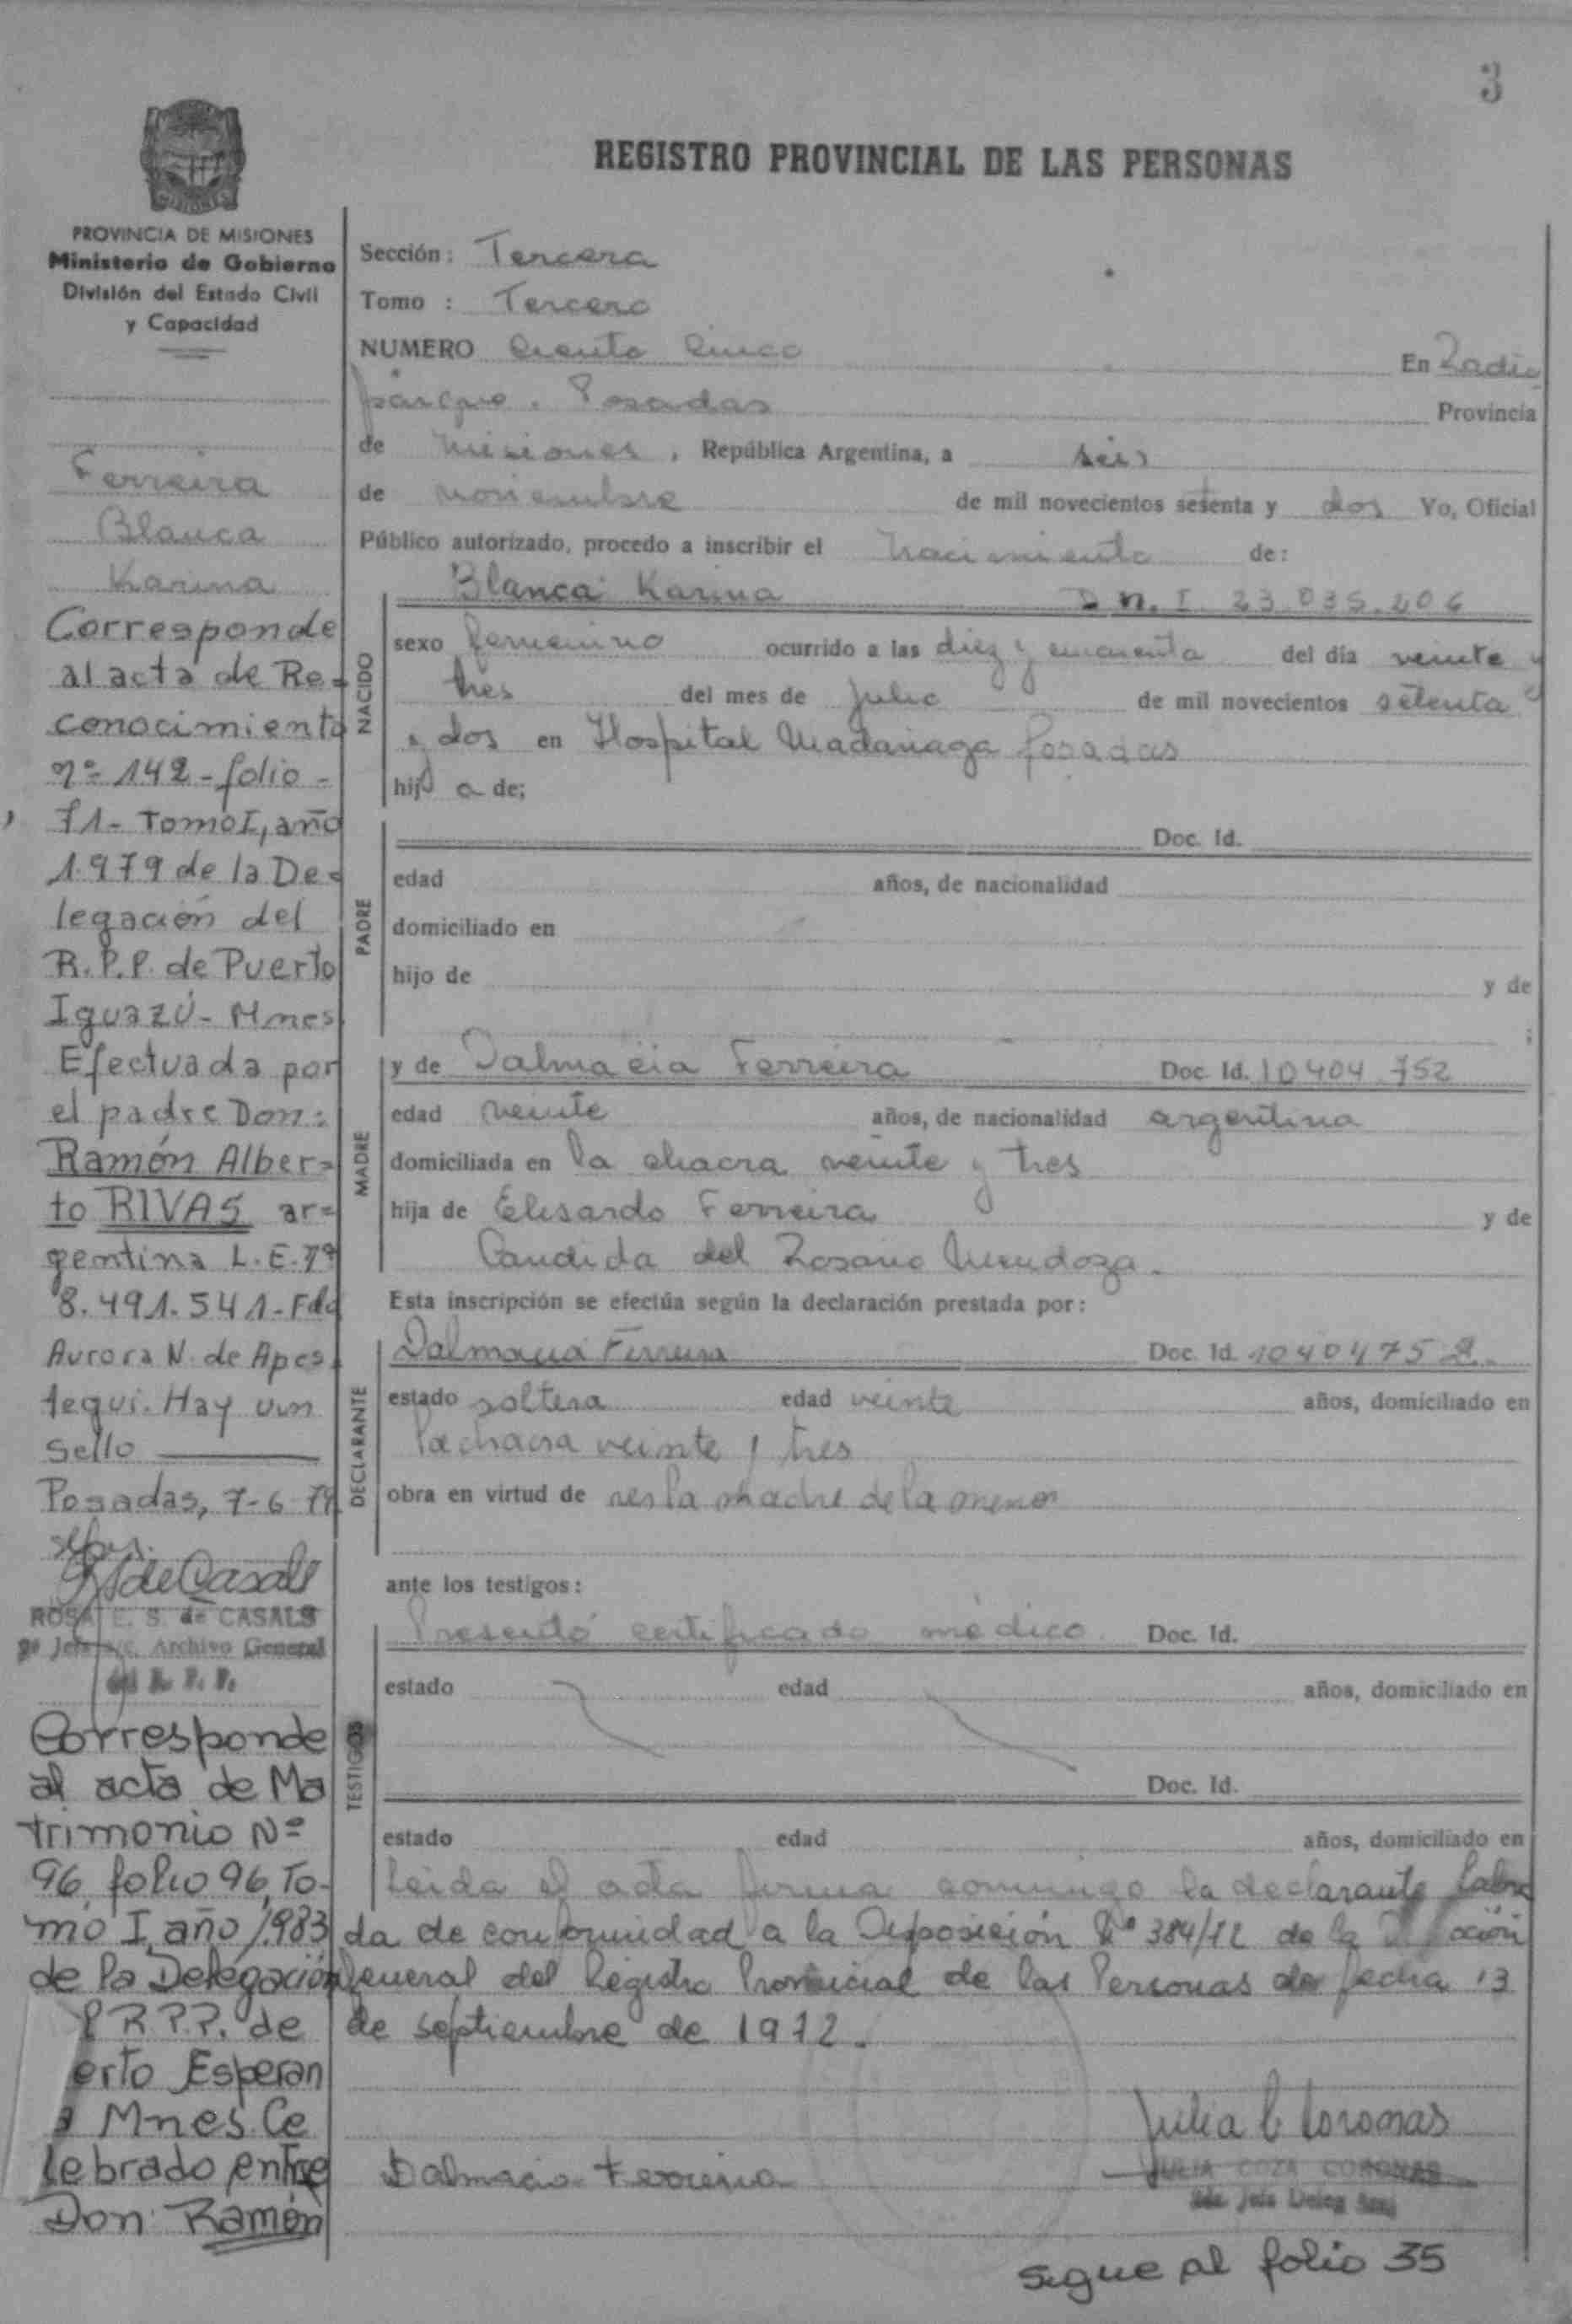 3
REGISTRO PROVINCIAL DE LAS PERSONAS
PROVINCIA DE MISIONES
Ministerio de Gobierno
División del Estado Civil
y Capacidad
Ferreira
Blanca
Karina
Corresponde
al acta de Re-
conocimiento
nº 142 - folio -
71 - Tomo I, año
1.979 de la De-
legación del
R.P.P. de Puerto
Iguazú - Mnes
Efectuada por
el padre Don:
Ramón Alber-
to RIVAS ar-
gentina L.E. nº
8.491.541 - Fdo
Aurora N. de Apes
tegui. Hay un
Sello
Posadas, 7-6-79
de Casals
ROSA E. S. de CASALS
Jefe Archivo General
del R. P. P.
Corresponde
al acta de Ma
trimonio Nº
96 folio 96, To-
mo I, año 1.983
de la Delegación
R.P.P. de
erto Esperan
a Mnes. Ce
lebrado entre
Don Ramón
Sección: Tercera
Tomo: Tercero
NUMERO Ciento Cinco En Radio
parque. Posadas Provincia
de Misiones, República Argentina, a seis
de noviembre de mil novecientos setenta y dos Yo, Oficial
Público autorizado, procedo a inscribir el nacimiento de:
NACIDO
Blanca Karina D.N.I. 23.035.206
sexo femenino ocurrido a las diez y cincuenta del día veinte y
tres del mes de julio de mil novecientos setenta y
dos en Hospital Madariaga Posadas
hij a de;
PADRE
Doc. Id.
edad años, de nacionalidad
domiciliado en
hijo de y de
;
MADRE
y de Dalmacia Ferreira Doc. Id. 10404.752
edad veinte años, de nacionalidad argentina
domiciliada en la chacra veinte y tres
hija de Elisardo Ferreira y de
Candida del Rosario Mendoza.
Esta inscripción se efectúa según la declaración prestada por:
DECLARANTE
Dalmacia Ferreira Doc. Id. 10404752
estado soltera edad veinte años, domiciliado en
la chacra veinte y tres
obra en virtud de ser la madre de la menor
ante los testigos:
TESTIGOS
Presentó certificado médico. Doc. Id.
estado edad años, domiciliado en
Doc. Id.
estado edad años, domiciliado en
Leida el acta firma conmigo la declarante labra
da de conformidad a la Disposición Nº 384/72 de la
General del Registro Provincial de las Personas de fecha 13
de septiembre de 1972.
Julia C Coronas
Dalmacia Ferreira
JULIA COZA CORONAS
Jefe Deleg
Sigue al folio 35